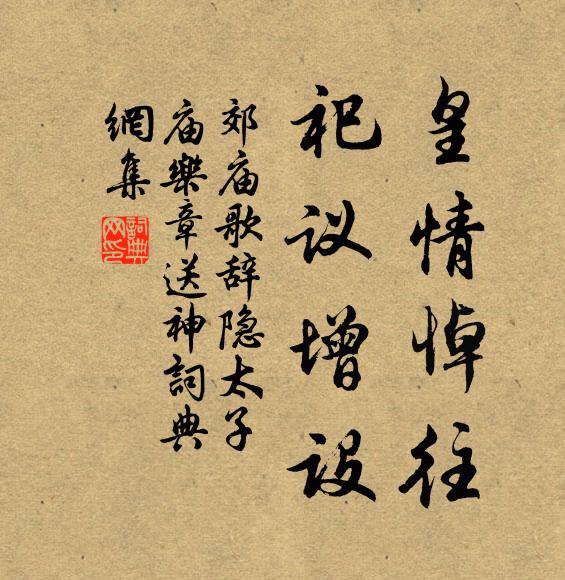 皇情悼往
祀议增设
郊庙歌辞隐太子
庙樂章送神詞典
網集
詞典
网印